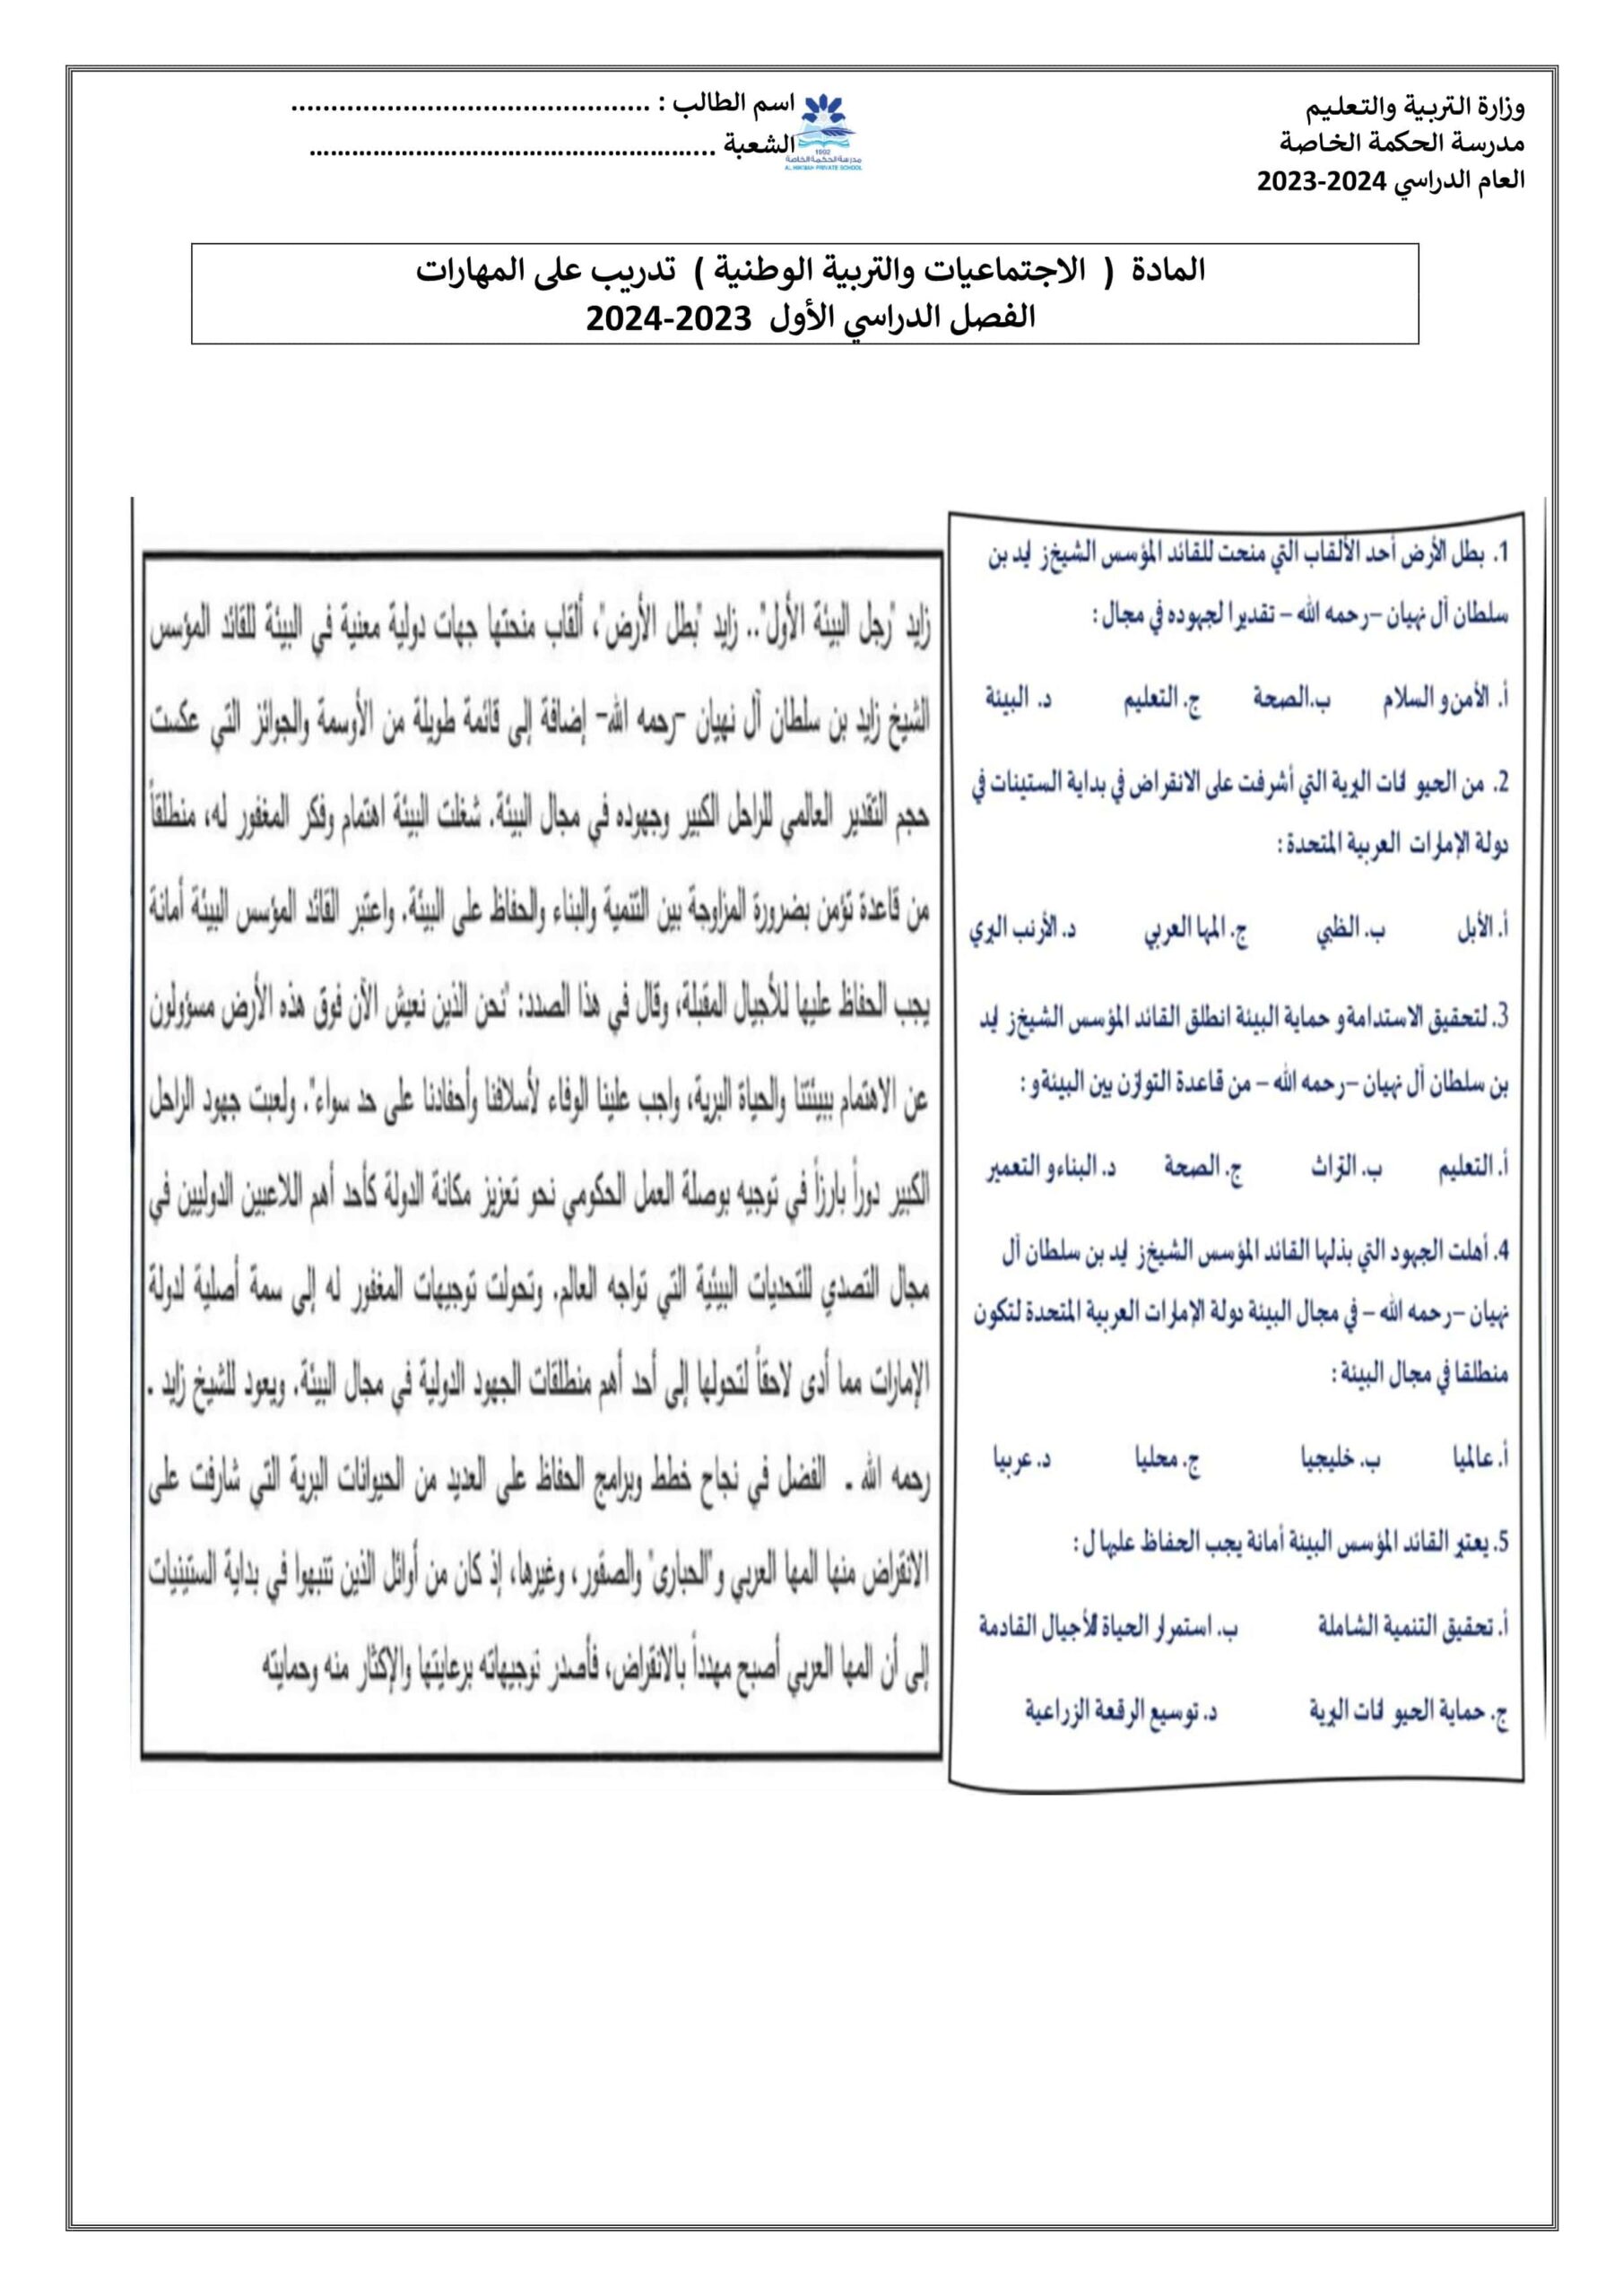 وزارة التربية والتعليم
مدرسة الحكمة الخاصة
العام الدراسي 2024-2023
اسم الطالب : .............................................
الشعبة .........................................................
1992
مدرسة الحكمة الخاصة
AL HIKMAH PRIVATE SCHOOL
المادة ( الاجتماعيات والتربية الوطنية ) تدريب على المهارات
الفصل الدراسي الأول 2023-2024
1. بطل الأرض أحد الألقاب التي منحت للقائد المؤسس الشيخ ز ايد بن
سلطان آل نهيان –رحمه الله – تقديرا لجهوده في مجال :
أ. الأمن و السلام ب.الصحة ج. التعليم د. البيئة
2. من الحيو انات البرية التي أشرفت على الانقراض في بداية الستينات في
دولة الإمارات العربية المتحدة :
أ. الأبل ب. الظبي ج. المها العربي د. الأرنب البري
3. لتحقيق الاستدامة و حماية البيئة انطلق القائد المؤسس الشيخ ز ايد
بن سلطان آل نهيان –رحمه الله – من قاعدة التوازن بين البيئة و :
أ. التعليم ب. التراث ج. الصحة د. البناء و التعمير
4. أهلت الجهود التي بذلها القائد المؤسس الشيخ ز ايد بن سلطان آل
نهيان –رحمه الله – في مجال البيئة دولة الإمارات العربية المتحدة لتكون
منطلقا في مجال البيئة :
أ. عالميا ب. خليجيا ج. محليا د. عربيا
5. يعتبر القائد المؤسس البيئة أمانة يجب الحفاظ عليها ل :
أ. تحقيق التنمية الشاملة ب. استمرار الحياة للأجيال القادمة
ج. حماية الحيو انات البرية د. توسيع الرقعة الزراعية
زايد "رجل البيئة الأول".. زايد "بطل الأرض"، ألقاب منحتها جهات دولية معنية في البيئة للقائد المؤسس
الشيخ زايد بن سلطان آل نهيان –رحمه الله– إضافة إلى قائمة طويلة من الأوسمة والجوائز التي عكست
حجم التقدير العالمي للراحل الكبير وجهوده في مجال البيئة. شغلت البيئة اهتمام وفكر المغفور له، منطلقاً
من قاعدة تؤمن بضرورة المزاوجة بين التنمية والبناء والحفاظ على البيئة. واعتبر القائد المؤسس البيئة أمانة
يجب الحفاظ عليها للأجيال المقبلة، وقال في هذا الصدد: "نحن الذين نعيش الآن فوق هذه الأرض مسؤولون
عن الاهتمام ببيئتنا والحياة البرية، واجب علينا الوفاء لأسلافنا وأحفادنا على حد سواء". ولعبت جهود الراحل
الكبير دوراً بارزاً في توجيه بوصلة العمل الحكومي نحو تعزيز مكانة الدولة كأحد أهم اللاعبين الدوليين في
مجال التصدي للتحديات البيئية التي تواجه العالم. وتحولت توجيهات المغفور له إلى سمة أصلية لدولة
الإمارات مما أدى لاحقاً لتحولها إلى أحد أهم منطلقات الجهود الدولية في مجال البيئة. ويعود للشيخ زايد .
رحمه الله . الفضل في نجاح خطط وبرامج الحفاظ على العديد من الحيوانات البرية التي شارفت على
الانقراض منها المها العربي و"الحبارى" والصقور، وغيرها، إذ كان من أوائل الذين تنبهوا في بداية الستينيات
إلى أن المها العربي أصبح مهدداً بالانقراض، فأصدر توجيهاته برعايتها والإكثار منه وحمايته